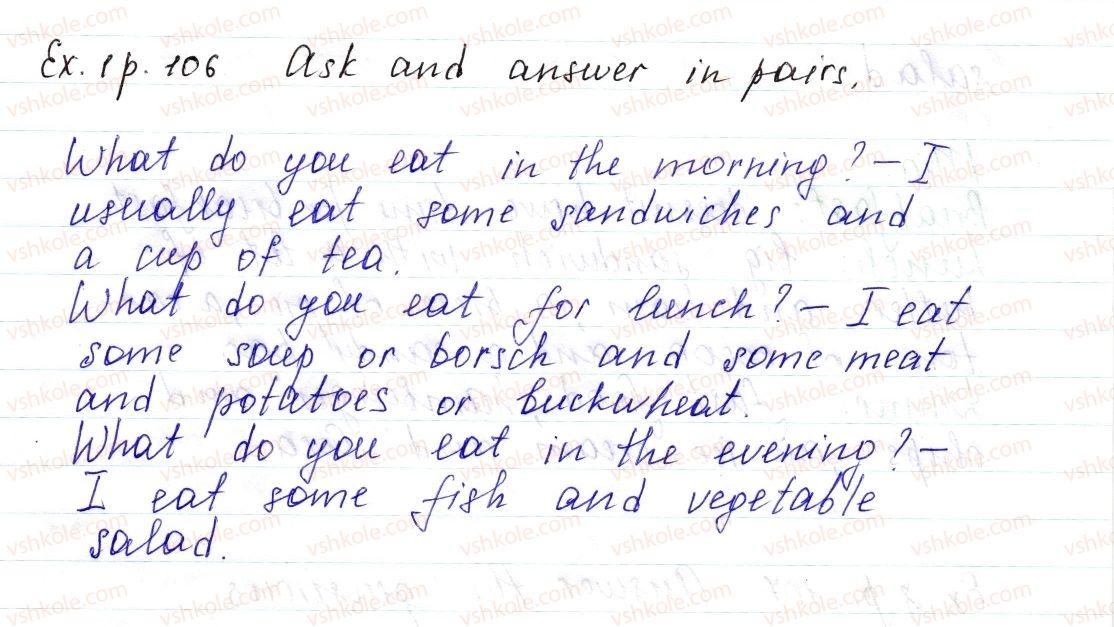 Ex. 1 p. 106 Ask and answer in pairs.
What do you eat in the morning? – I
usually eat some sandwiches and
a cup of tea.
What do you eat for lunch? – I eat
some soup or borsch and some meat
and potatoes or buckwheat.
What do you eat in the evening? –
I eat some fish and vegetable
salad.
vshkole.com